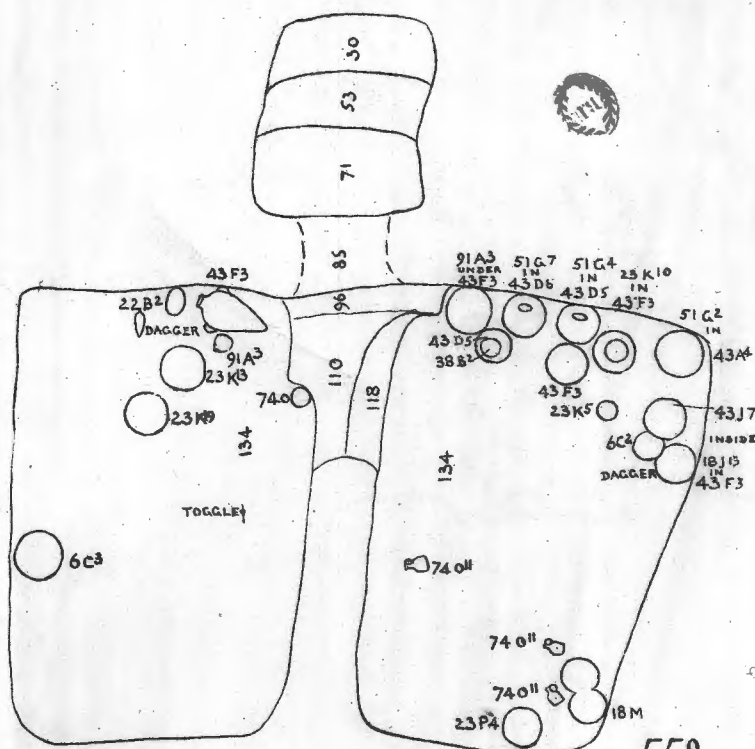 30
53
71
85
96
110
118
43F3
22B²
DAGGER
91A³
23K13
23K19
74O
134
TOGGLE
6C³
91A3
UNDER
43F3
51G.7
IN
43D6
51G.4
IN
43D5
23K10
IN
43F3
51G²
IN
43A⁴
43D5
38B²
43F3
23K5
43J7
INSIDE
6C²
DAGGER
18J13
IN
43F3
134
74O"
74O"
74O"
18M
23P4